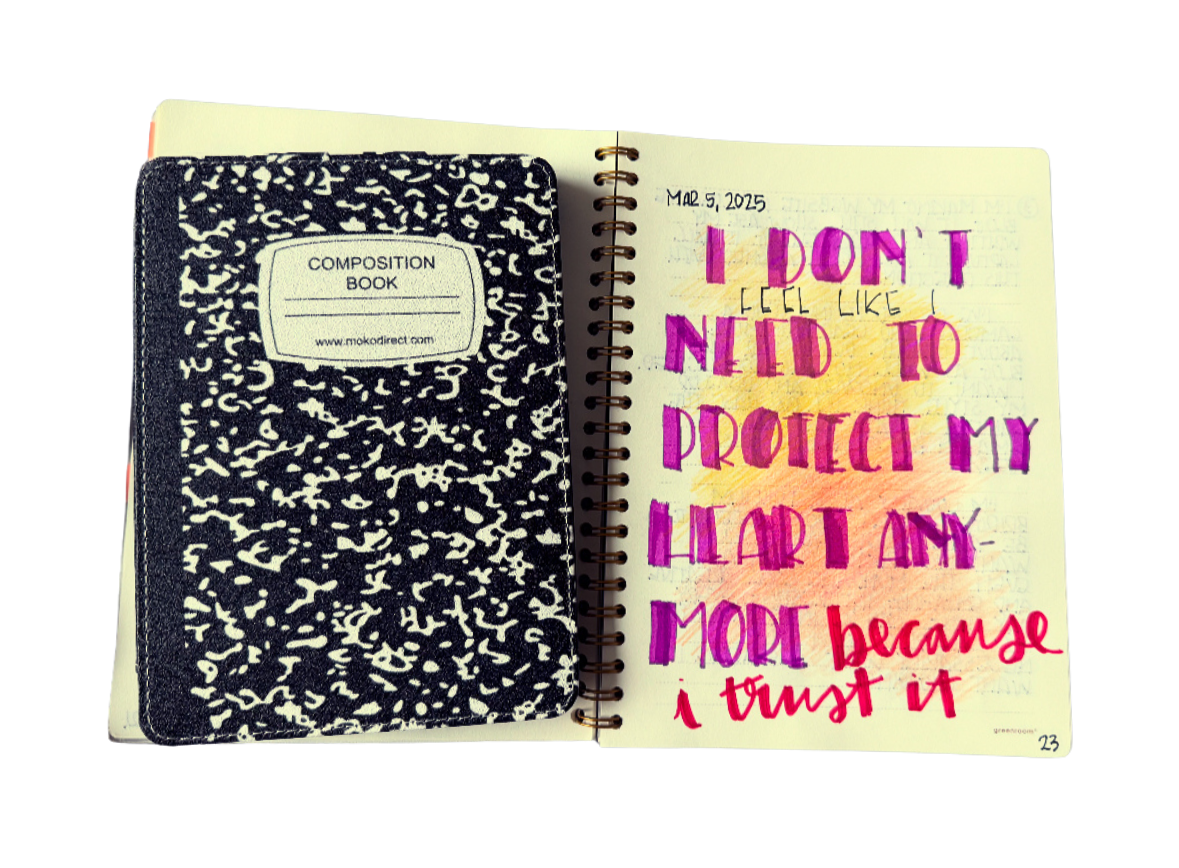 COMPOSITION
BOOK
www.mokodirect.com
MAR 5, 2025
I DON'T
FEEL LIKE I
NEED TO
PROTECT MY
HEART ANY-
MORE because
i trust it
greenroom
23